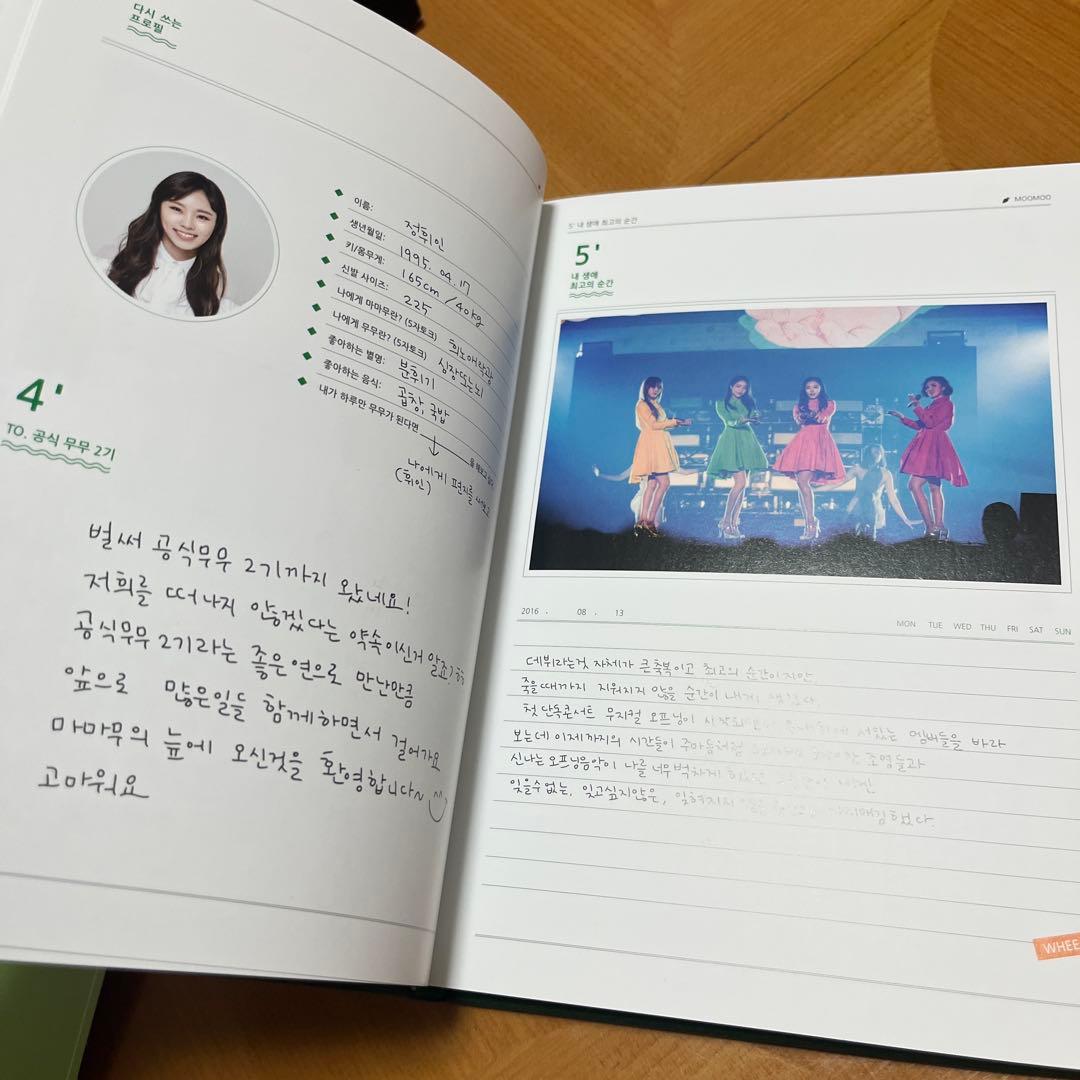 다시 쓰는
프로필
이름: 정휘인
생년월일: 1995. 04. 17
키/몸무게: 165cm / 40kg
신발 사이즈: 225
나에게 마마무란? (5자토크) 희노애락광
나에게 무무란? (5자토크) 심장또는뇌
좋아하는 별명: 분휘기
좋아하는 음식: 곱창, 국밥
내가 하루만 무무가 된다면
을 해보고
나에게 편지를
(휘인)
4'
TO. 공식 무무 2기
벌써 공식무무 2기까지 왔네요!
저희를 떠나지 않겠다는 약속이신거 알죠?
공식무무 2기라는 좋은 연으로 만난만큼
앞으로 많은일들 함께하면서 걸어가요
마마무의 늪에 오신것을 환영합니다~
고마워요
MOOMOO
5' 내 생애 최고의 순간
5'
내 생애
최고의 순간
2016 . 08 . 13
MON TUE WED THU FRI SAT SUN
데뷔라는것 자체가 큰 축복이고 최고의 순간이지만
죽을때까지 지워지지 않을 순간이 내게
첫 단독콘서트 뮤지컬 오프닝이 서있는 멤버들을 바라
보는데 이제까지의 시간들이 주마등처럼 조명들과
신나는 오프닝음악이 나를 너무 벅차게
잊을수없는, 잊고싶지않은, 잊혀지지
WHEE